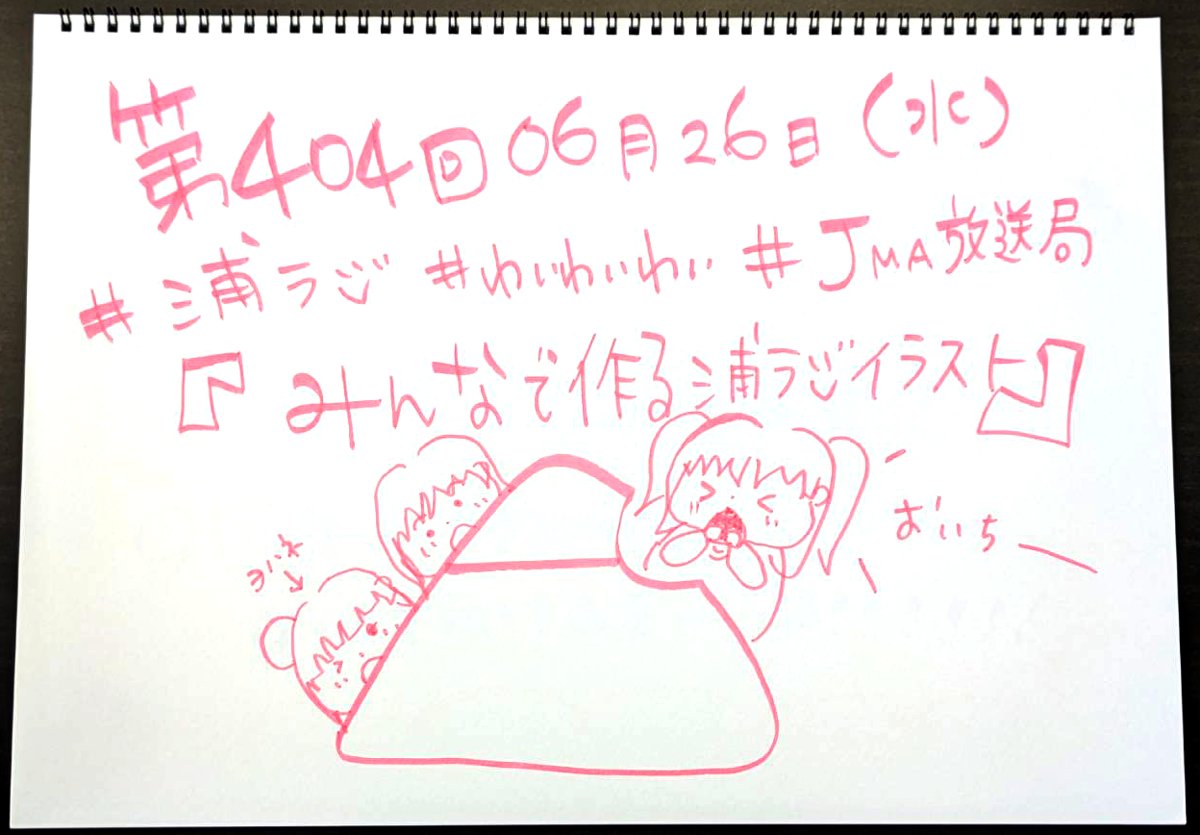 第404回 06月26日(水)
#浦ラジ #わいわいわい #JMA放送局
『みんなで作る浦ラジイラスト』
おいちー